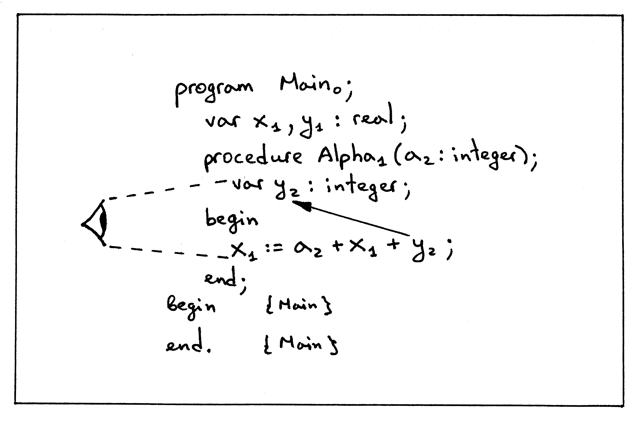 program Main₀;
var x₁, y₁ : real;
procedure Alpha₁ (a₂ : integer);
var y₂ : integer;
begin
x₁ := a₂ + x₁ + y₂ ;
end;
begin {Main}
end. {Main}